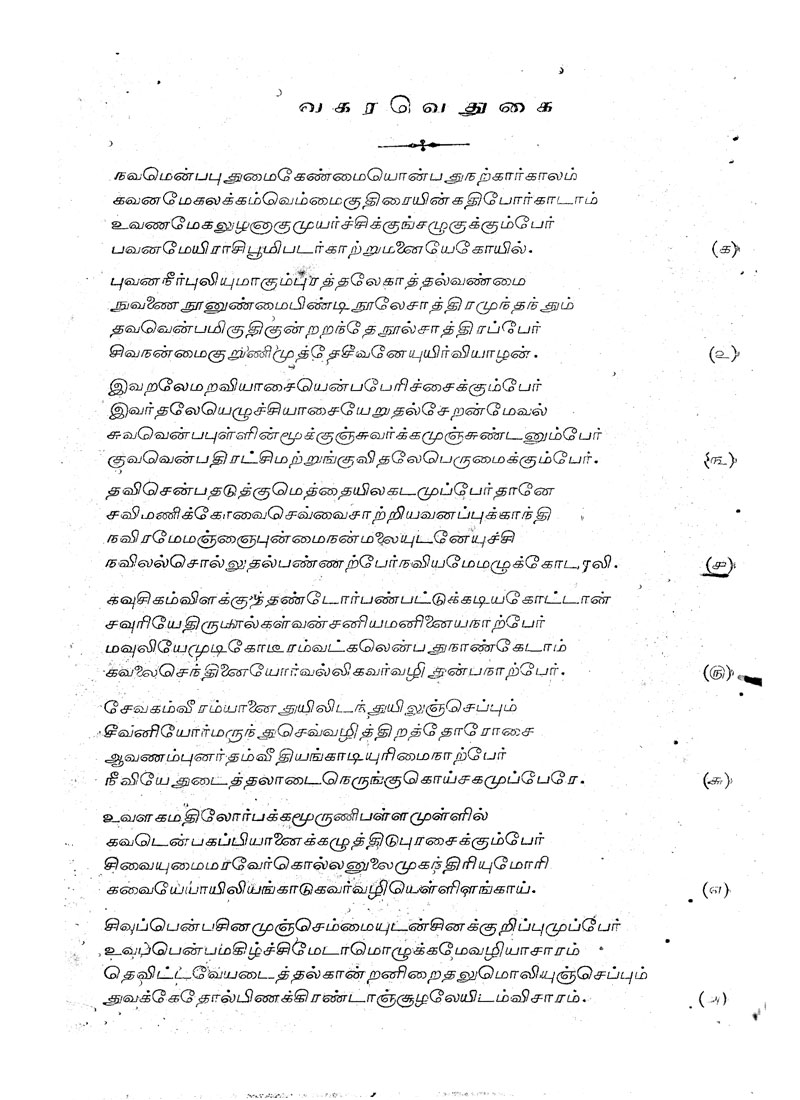 வகரவெதுகை
நவமென்பபுதுமைகேண்மையொன்பதுநற்கார்காலம்
கவனமேகலக்கம்வெம்மைகுதிரையின்கதிபோர்காடாம்
உவணமேகலுழனாகுமுயர்ச்சிக்குங்சழுகுக்கும்பேர்
பவனமேயிராசிபூமிபடர்காற்றுமனையேகோயில். (க)
புவனநீர்புவியுமாகும்புரத்தலேகாத்தல்வண்மை
நுவணைநூனுண்மைபிண்டிநூலேசாத்திரமுந்தந்தும்
தவவென்பமிகுதிகுன்றறந்தேநூல்சாத்திரப்பேர்
சிவநன்மைகுறுணிமுத்தேசீவனேயுயிர்வியாழன். (உ)
இவறலேமறவியாசையென்பபேரிச்சைக்கும்பேர்
இவர்தலேயெழுச்சியாசையேறுதல்சேறன்மேவல்
சுவவென்பபுள்ளின்மூக்குஞ்சுவர்க்கமுஞ்சுண்டனும்பேர்
குவவென்பதிரட்சிமற்றுங்குவிதலேபெருமைக்கும்பேர். (ங)
தவிசென்பதடுத்குமெத்தையிலகடமுப்பேர்தானே
சவிமணிக்கோவைசெவ்வைசாற்றியவனப்புக்காந்தி
நவிரமேமஞ்ஞைபுன்மைநன்மலையுடனேயுச்சி
நவிலல்சொல்லுதல்பண்ணற்பேர்நவியமேமழுக்கோடாலி. (ச)
கவுசிகம்விளக்குத்தண்டோர்பண்பட்டுக்கடியகோட்டான்
சவுரியேதிருமால்கள்வன்சனியமனினையநாற்பேர்
மவுலியேமுடிகோடீரம்வட்கலென்பதுநாண்கேடாம்
கவலைசெந்தினையோர்வல்லிகவர்வழிதுன்பநாற்பேர். (ரு)
சேவகம்வீரம்யானைதுயிலிடந்துயிலுஞ்செப்பும்
சீவனியோர்மருந்துசெவ்வழித்திறத்தோரோசை
ஆவணம்புனர்தம்வீதியங்காடியுரிமைநாற்பேர்
நீவியேதுடைத்தலாடைநெருங்குகொய்சகமுப்பேரே. (சு)
உவளகமதிலோர்பக்கமூருணிபள்ளமுள்ளில்
கவடென்பகப்பியானைக்கழுத்திடுபுரசைக்கும்பேர்
சிவையுமைமரவேர்கொல்லனுலைமுகந்திரியுமோரி
கவையேபாயிலியங்காடுகவர்வழியெள்ளிளங்காய். (எ)
சிவப்பென்பசினமுஞ்செம்மையுடன்சினக்குறிப்புமுப்பேர்
உவப்பென்பமகிழ்ச்சிமேடாமொழுக்கமேவழியாசாரம்
தெவிட்டவேயடைத்தல்கான்றனிறைதலுமொலியுஞ்செப்பும்
துவக்கேதோல்பிணக்கிரண்டாஞ்சூழலேயிடம்விசாரம். (அ)